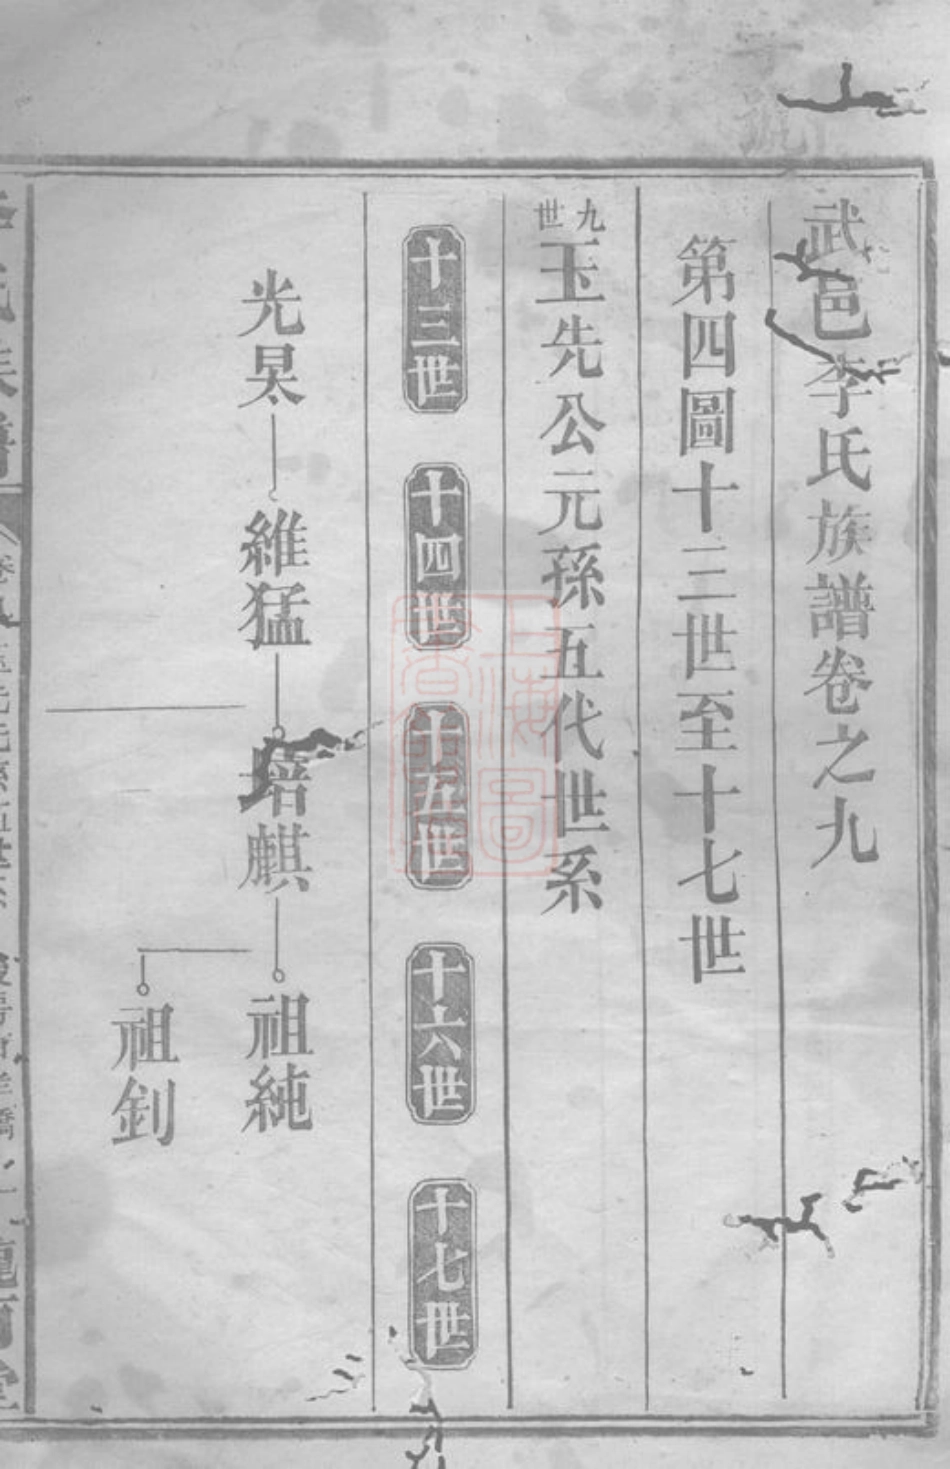 武邑李氏族譜卷之九
第四圖十三世至十七世
九世玉先公元孫五代世系
十三世
十四世
十五世
十六世
十七世
光昊
維猛
培麒
祖純
祖釗